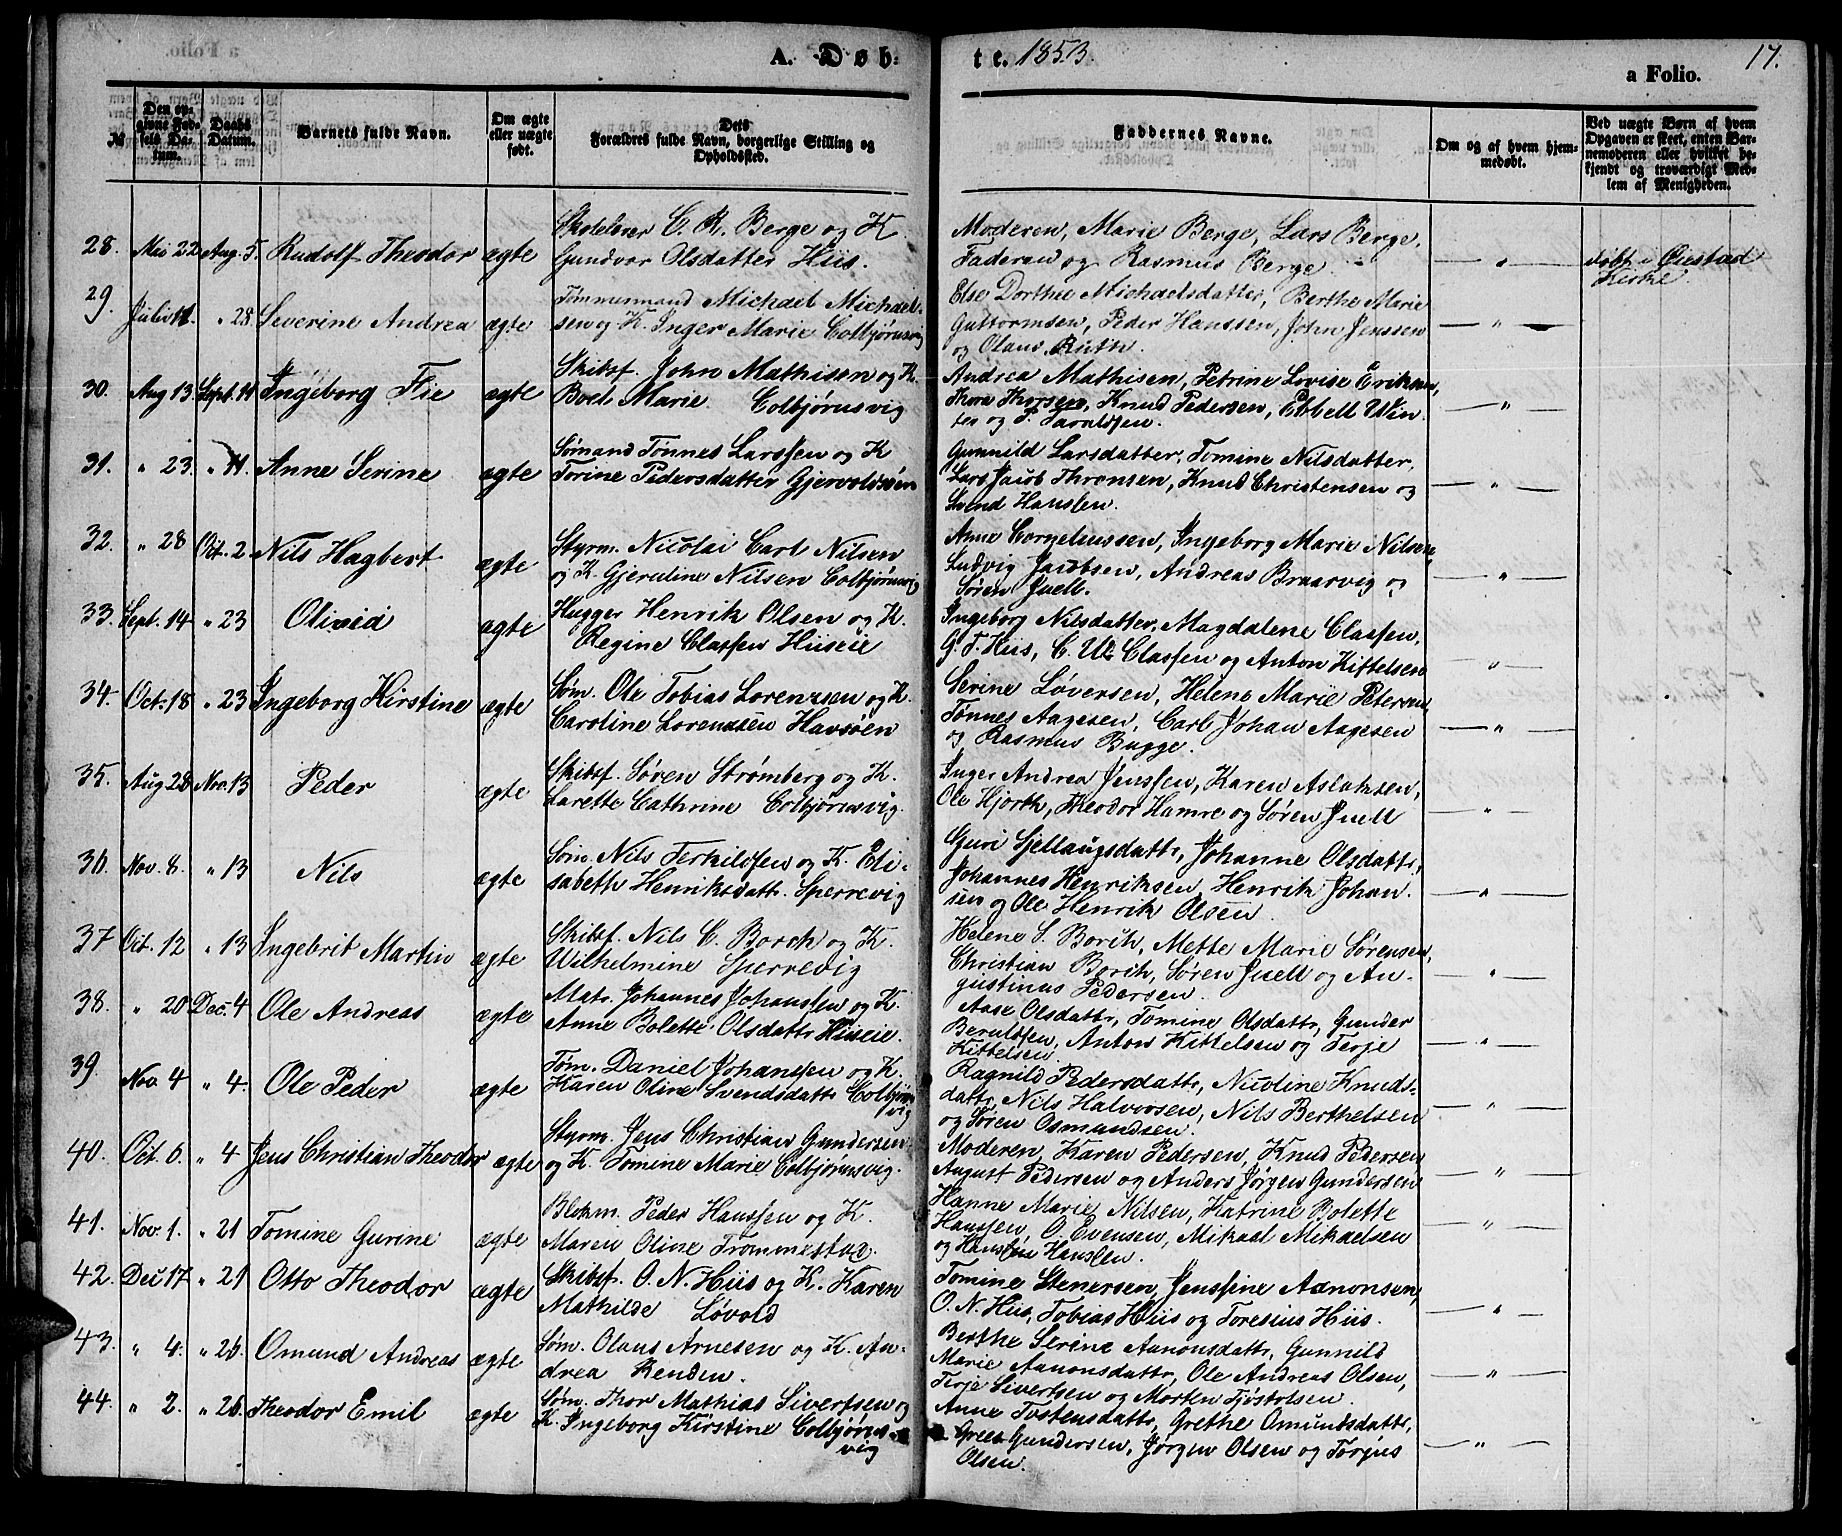 A. Døb-
te. 1853.
a Folio.
17.
№
Den op-
givne Fød-
sels Da-
tum.
Daabs
Datum.
Barnets fulde Navn.
Om ægte
eller uægte
født.
Dets
Forældres fulde Navn, borgerlige Stilling og
Opholdssted.
Faddernes Navne.
Om og af hvem hjem-
medøbt.
Ved uægte Børn af hvem
Opgaven er skeet, enten Bar-
nemoderen eller hvilket be-
kjendt og troværdigt Med-
lem af Menigheden.
28. Mai 22 Aug. 5. Rudolf Theodor ægte
Skolelærer C. R. Berge og K
Gundvor Olsdatter Hiis.
Moderen, Marie Berge, Lars Berge,
Faderen og Rasmus Berge.
— „ —
døbt i Øiestad
Kirke.
29. Juli 11. „ 28. Severine Andrea ægte
Tømmermand Michael Michael-
sen og K. Inger Marie Colbjørnsvig
Else Dorthee Michaelsdatter, Berthe Marie
Guttormsen, Peder Hanssen, John Jenssen
og Olaus Ruth.
— „ —
30. Aug 13. Sept. 11 Ingeborg Fie ægte
Skibsf. John Mathisen og K.
Boel Marie. Colbjørnsvig
Andrea Mathisen, Petrine Lovise Eriksen,
Thora Thorsen, Knud Pedersen, Ebbell Win
ter og T. Taraldsen.
— „ —
31. „ 23. „ 11. Anne Serine ægte
Sømand Tønnes Larssen og K
Torine Pedersdatter Gjervoldsøen
Gunnild Larsdatter, Tomine Nilsdatter,
Lars Jacob Thronsen, Knud Christensen og
Svend Hanssen.
— „ —
32. „ 28 Oct. 2. Nils Hagbert ægte
Styrm. Nicolai Carl Nilsen
og K. Gjerdine Nilsen Colbjørnsvig
Anne Corneliussen, Ingeborg Marie Nilsen,
Ludvig Jacobsen, Andreas Braarvig og
Søren Juell.
— „ —
33. Sept. 14 „ 23 Olivid ægte
Hugger Henrik Olsen og K.
Regine Classen Hiiseie
Ingeborg Nilsdatter, Magdalene Classen,
G. T. Hiis, C. W. Classen og Anton Kittelsen
„ —
34. Oct. 18 „ 23 Ingeborg Kirstine ægte
Søm. Ole Tobias Lorenssen og K.
Caroline Lorenssen Havsøen
Serine Løversen, Helene Marie Petersen
Tønnes Aagesen, Carl Johan Aagesen
og Rasmus Bugge.
— „ —
35. Aug 28 Nov. 13 Peder ægte
Skibsf. Søren Strømberg og K.
Larette Cathrine Colbjørnsvig.
Inger Andrea Jenssen, Karen Aslaksen,
Ole Hjorth, Theodor Hamre og Søren Juell
— „ —
36. Nov. 8. „ 13 Nils ægte
Søm. Nils Terkildsen og K. Eli-
sabeth Henriksdatt. Sperrevig
Guri Sjellaugsdattr, Johanne Olsdattr,
Johannes Henriksen, Henrik Johan-
sen og Ole Henrik Olsen.
— „ —
37 Oct. 12 „ 13 Ingebrit Martin ægte
Skibsf. Nils C. Borch og K.
Wilhelmine Sperrevig
Helene S. Borch, Mette Marie Sørensen,
Christian Borch, Søren Juell og Au-
gustinus Pedersen.
— „ —
38. „ 20 Dec. 4 Ole Andreas ægte
Matr. Johannes Johanssen og K.
Anne Bolette Olsdattr Hiiseie.
Aase Olsdattr, Tomine Olsdattr, Gunder
Beruldsen, Anton Kittelsen og Terje
Kittelsen.
— „ —
39. Nov. 4 „ 4. Ole Peder ægte
Tøm. Daniel Johanssen og K.
Karen Oline Svendsdattr Colbjørns
vig
Ragnild Pedersdattr, Nicoline Knuds-
dattr, Nils Halvorsen, Nils Berthelsen
og Søren Osmundsen.
— „ —
40. Oct. 6. „ 4 Jens Christian Theodor ægte
Styrm. Jens Christian Gundersen
og K. Tomine Marie Colbjørnsvig.
Moderen, Karen Pedersen, Knud Pedersen,
August Pedersen og Anders Jørgen Gundersen
— „ —
41. Nov. 1. „ 21 Tomine Gurine ægte
Blokm. Peder Hanssen og K.
Maren Oline Trommestad.
Hanne Marie Nilsen, Katrine Bolette
Hanssen, O. Evensen, Mikael Mikaelsen
og Hans Hanssen.
— „ —
42. Dec 17 „ 21 Otto Theodor ægte
Skibsf. O. N. Hiis og K. Karen
Mathilde Løvold
Tomine Stenersen, Jenssine Aanonsen,
O. N. Hiis, Tobias Hiis og Toresius Hiis.
— „ —
43. „ 4. „ 26. Omund Andreas ægte
Søm. Olaus Arnesen og K. An-
drea Renden.
Berthe Serine Aanonsdattr, Gunnild
Marie Aanonsdattr, Ole Andreas Olsen,
Terje Sivertsen og Morten Tjøstolsen.
— „ —
44. „ 2. „ 26. Theodor Emil ægte
Søm. Thor Mathias Sivertsen og
K. Ingeborg Kirstine Colbjørns-
vig
Anne Tostensdattr, Grethe Omundsdattr,
Gundersen, Jørgen Olsen og Torjus
Olsen.
— „ —